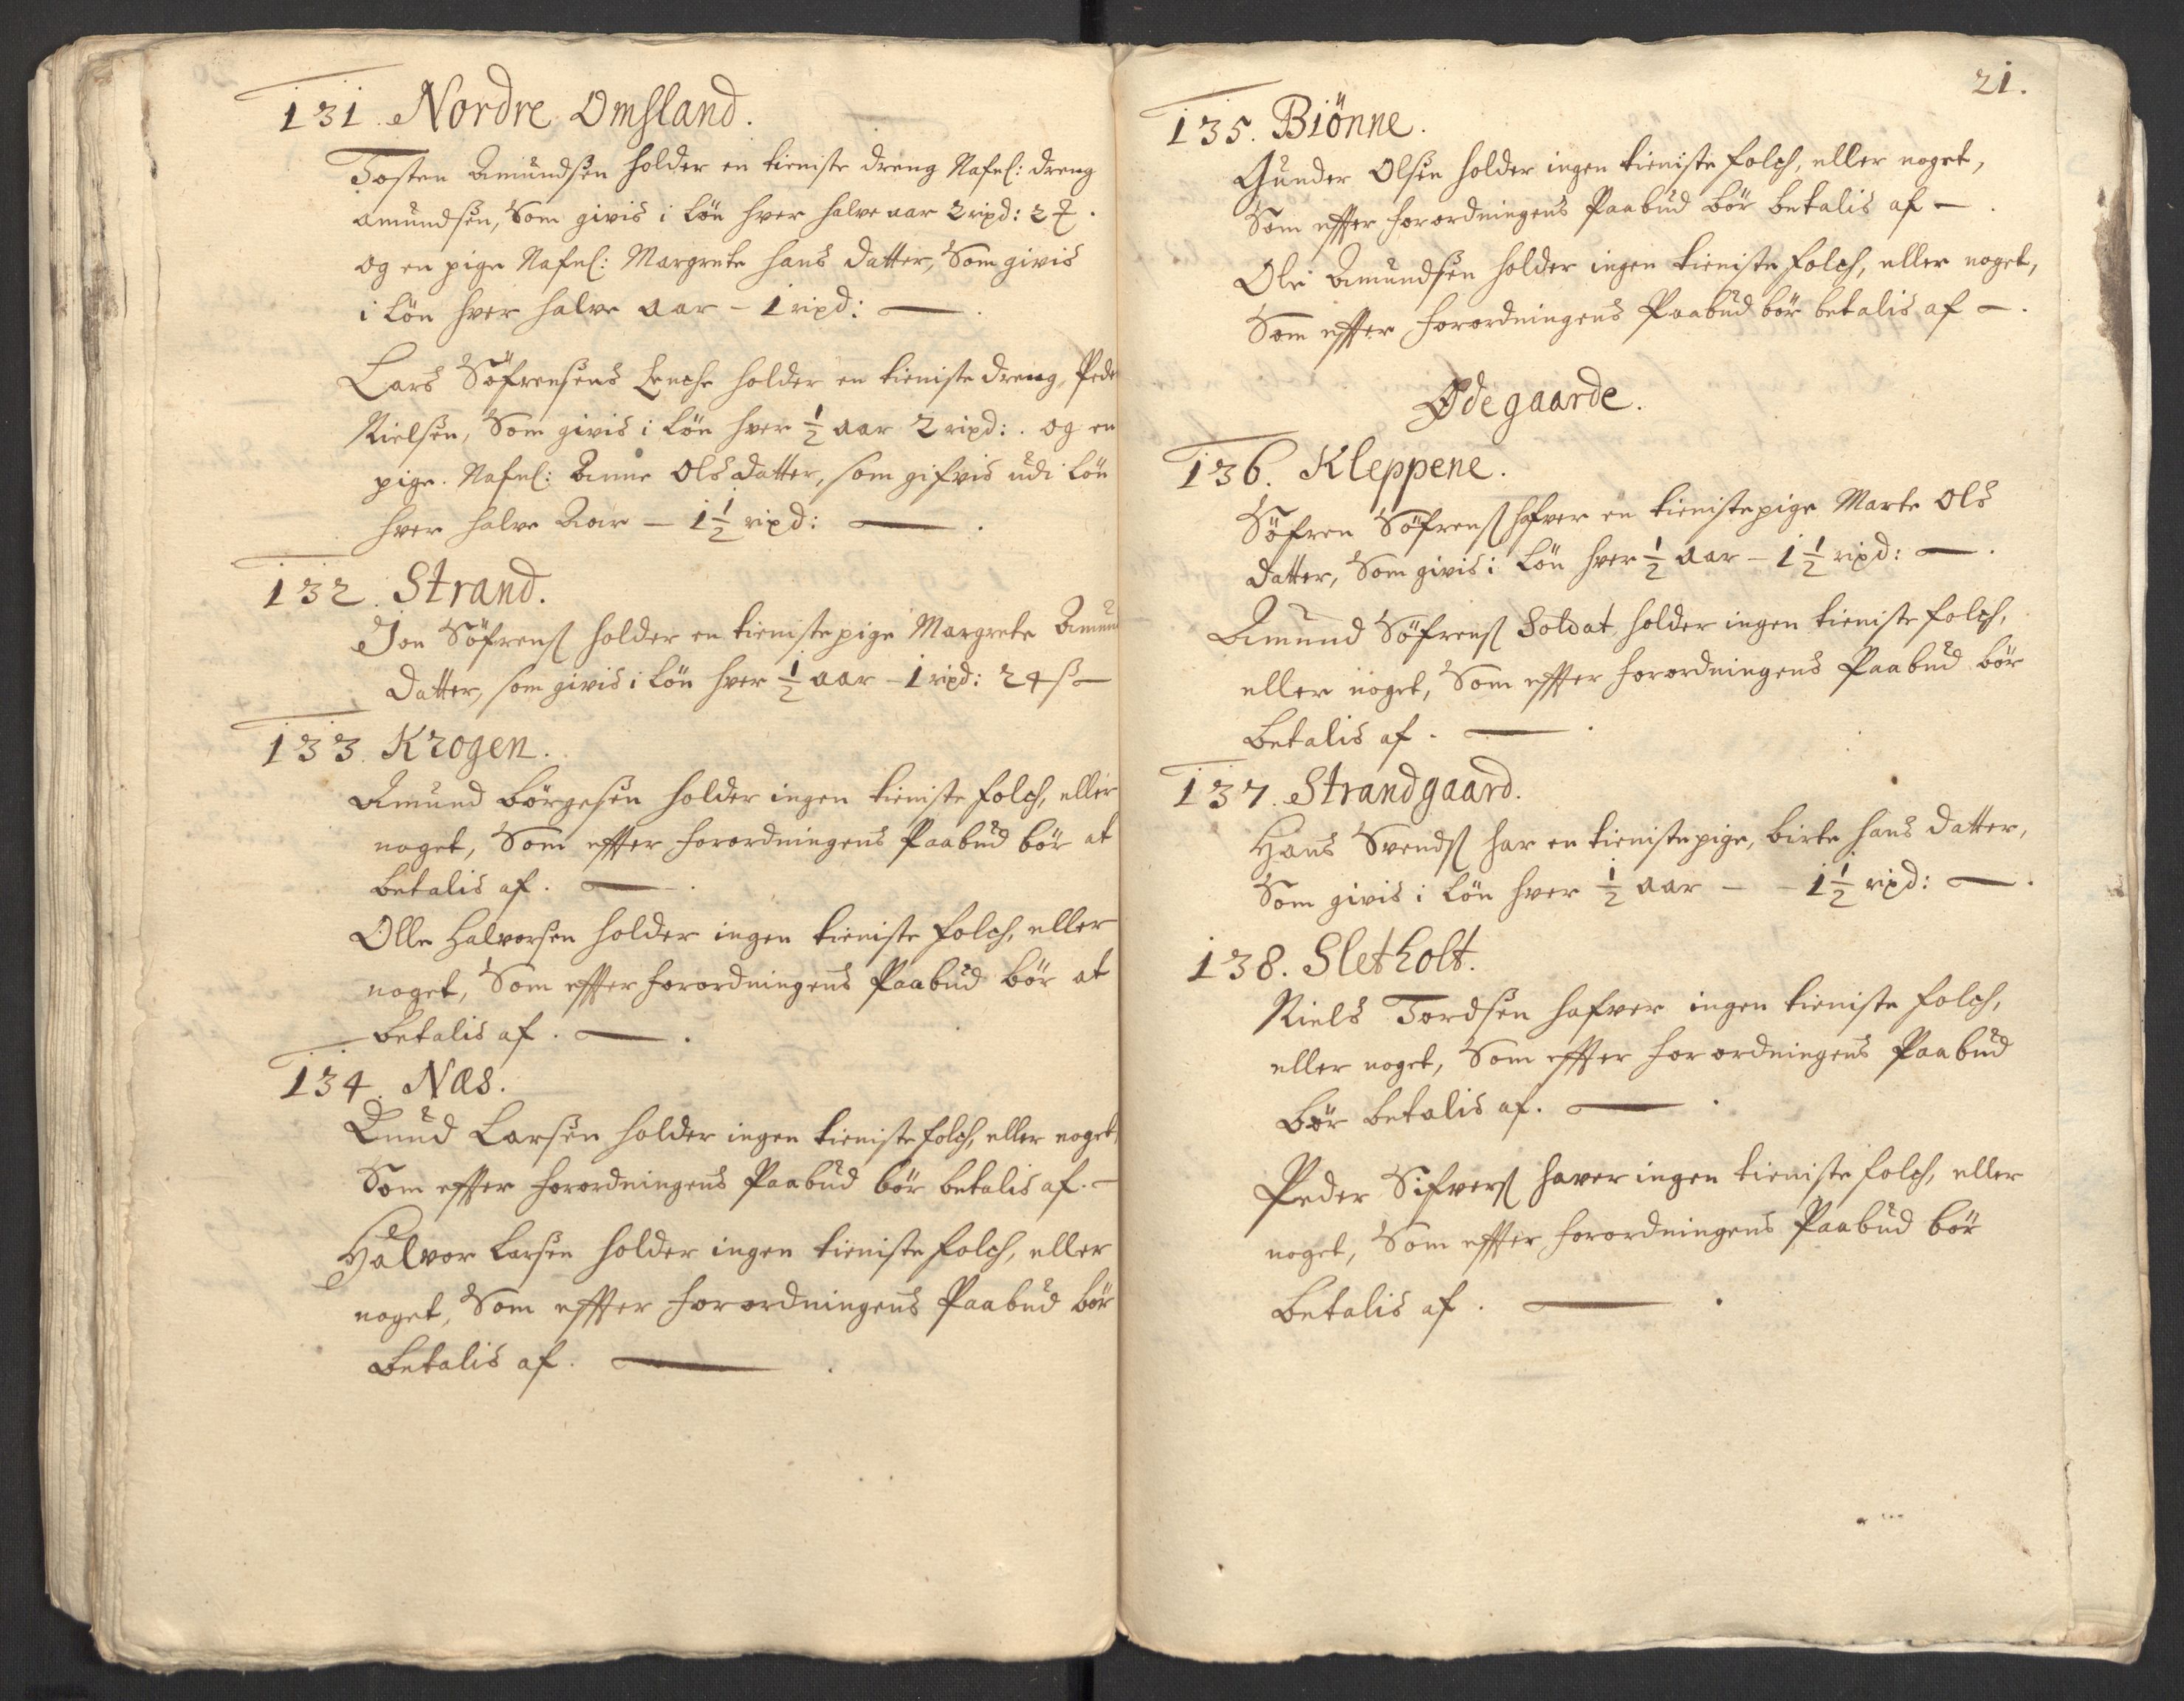 131. Nordre Omsland.
Tosten Amundsen holder en tieniste dreng Nafnl: dreng
amundsen, Som givis i Lön hver halve aar 2 rixd: 2
og en pige Nafnl: Margrete hans datter, Som givis
i Lön hver halve aar - 1 rixd: —
Lars Söfrensens Enche holder en tieniste dreng, Peder
Nielsen, Som givis i Lön hver ½ aar 2 rixd: . og en
pige. Nafnl: Anne Ols datter, som gifvis udi Lön
hver halve Aar — 1½ rixd: — .
132. Strand.
Jon Söfrens holder en tieniste pige Margrete Amund
datter, som givis i Lön hver ½ aar - 1 rixd: 24 ß —
133. Krogen.
Amund Börgesen holder ingen tieniste folch, eller
noget, Som effter forordningens Paabud bör at
betalis af. — .
Olle Halvorsen holder ingen tieniste folch, eller
noget, Som effter forordningens Paabud bör at
betalis af. — .
134. Næs.
Knud Larsen holder ingen tieniste folch, eller noget
Som effter forordningens Paabud bör betalis af. -
Halvor Larsen holder ingen tieniste folch, eller
noget, Som effter forordningens Paabud bör
betalis af. — .
21.
135. Biönne.
Gunder Olsen holder ingen tieniste folch, eller noget,
Som effter forordningens Paabud bör betalis af — .
Ole Amundsen holder ingen tieniste folch, eller noget,
Som effter forordningens Paabud bör betalis af — .
Ødegaarde.
136. Kleppene.
Söfren Söfrens hafver en tieniste pige Marte Ols
datter, Som givis i Lön hver ½ aar - 1½ rixd: — .
Amund Söfrens Soldat holder ingen tieniste folch,
eller noget, Som effter forordningens Paabud bör
betalis af. — .
137. Strandgaard.
Hans Svends har en tieniste pige, birte hans datter,
Som givis i Lön hver ½ aar - - 1½ rixd: — .
138. Sletholt.
Niels Tordsen hafver ingen tieniste folch,
eller noget, Som effter forordningens Paabud
bör betalis af. — .
Peder Sifvers haver ingen tieniste folch, eller
noget, Som effter forordningens Paabud bör
betalis af. — .